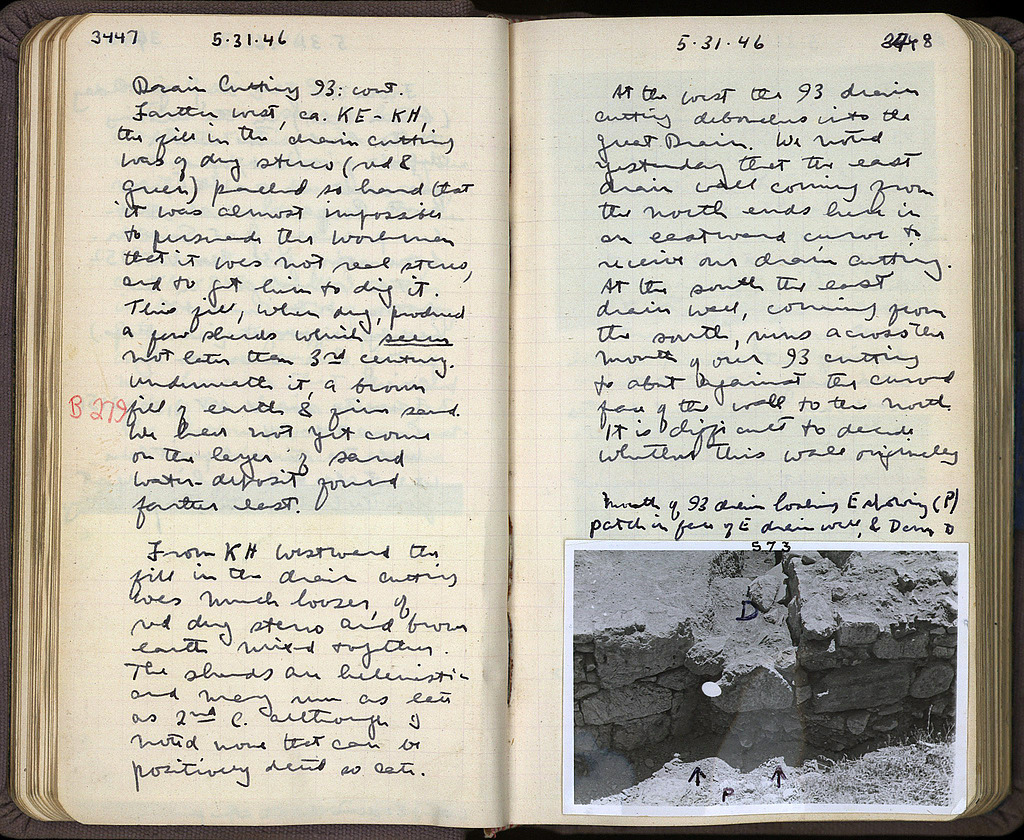 3447 5·31·46
Drain Cutting 93: cont.
Farther west, ca. KE-KH,
the fill in the drain cutting
was of dug stereo (red &
green) packed so hard that
it was almost impossible
to persuade the workmen
that it was not real stereo,
and to get him to dig it.
This fill, when dug, produced
a few sherds which seem
not later than 3rd century.
Underneath it, a brown
B 279
fill of earth & fine sand.
We have not yet come
on the layer of sand
water-deposit found
farther east.
From KH westward the
fill in the drain cutting
was much looser, of
red dug stereo and brown
earth mixed together.
The sherds are hellenistic
and may run as late
as 2nd C. although I
noted none that can be
positively dated so late.
5·31·46 3448
At the west the 93 drain
cutting debouches into the
Great Drain. We noted
yesterday that the east
drain wall coming from
the north ends here in
an eastward curve to
receive our drain cutting.
At the south the east
drain wall, coming from
the south, runs across the
mouth of our 93 cutting
to abut against the curved
face of the wall to the north.
It is difficult to decide
whether this wall originally
Mouth of 93 drain looking E showing (P)
patch in face of E drain wall, & Dam D
573
D
P